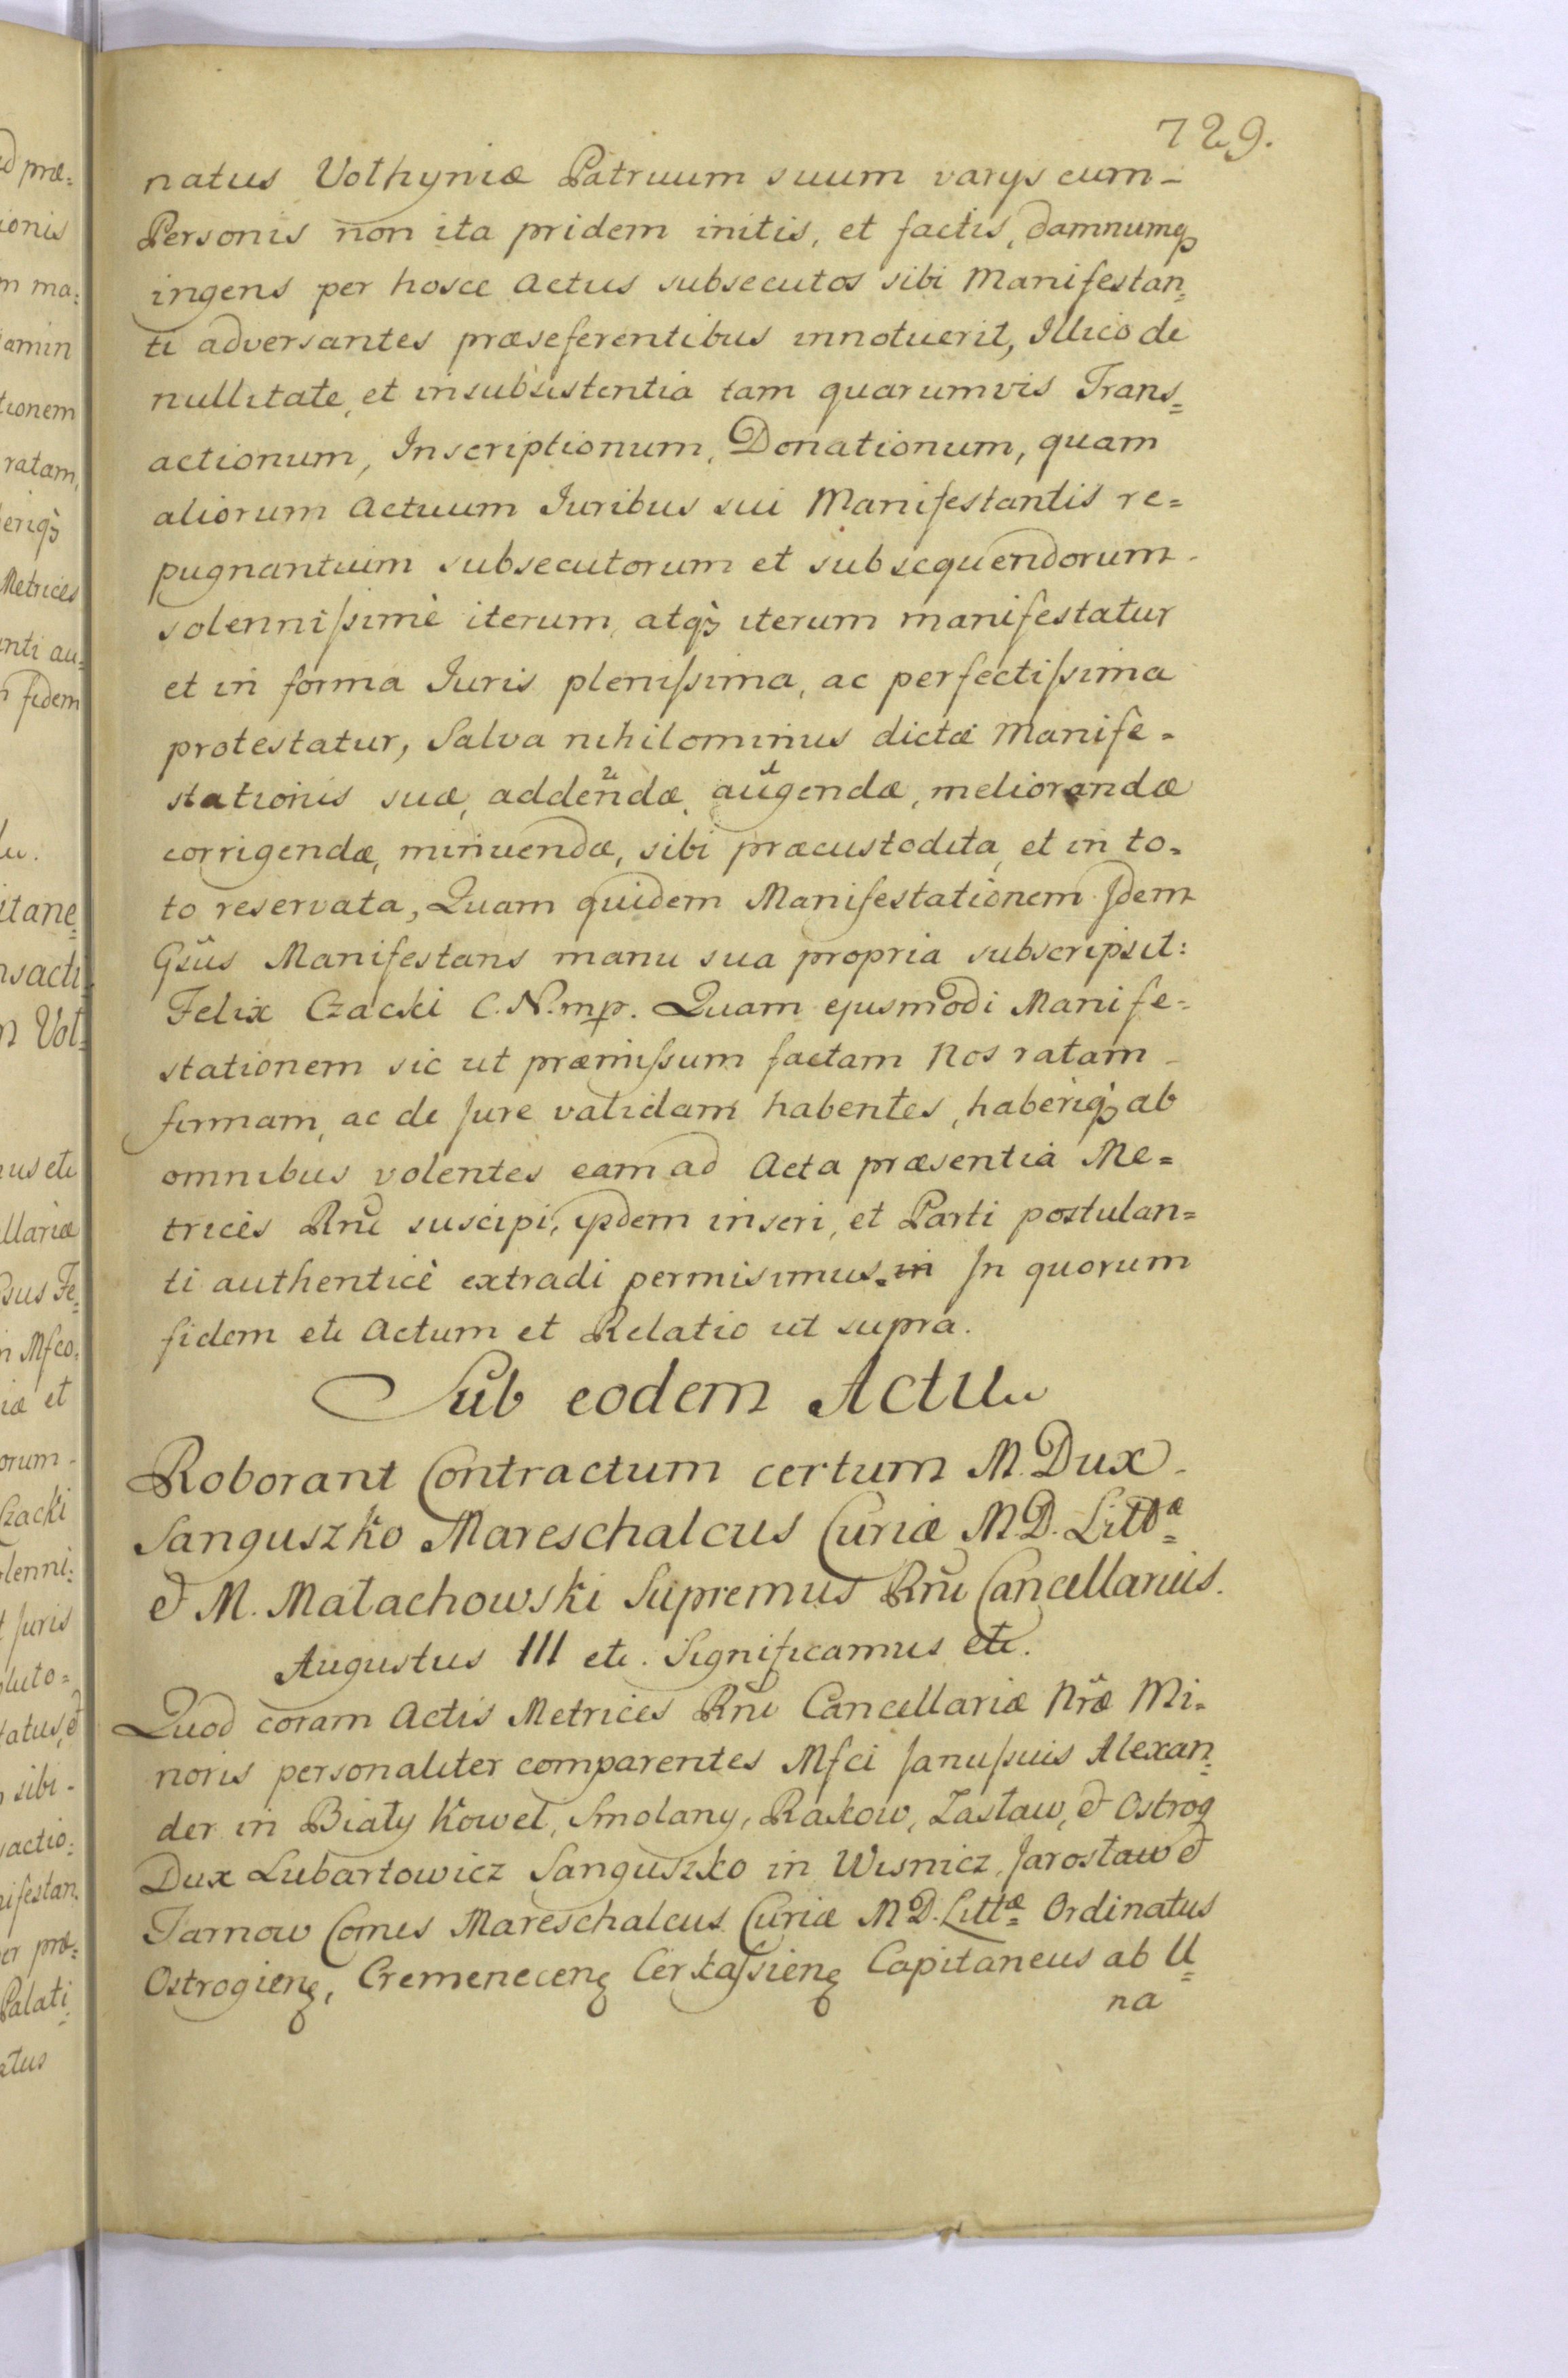 729.
natus Volhyniæ Patruum suum varys cum-
Personis non ita pridem initis, et factis, damnumqȝ
ingens per hosce Actus subsecutos sibi Manifestan=
ti adversantes præseferentibus innotuerit, Illico de
nullitate, et insubsistentia tam quarumvis Trans=
actionum, Inscriptionum, Donationum, quam
aliorum Actuum Iuribus sui Manifestantis re=
pugnantium subsecutorum et subsequendorum-
solennissimè iterum, atqȝ iterum manifestatur
et in forma Iuris plenissima, ac perfectissima
protestatur, Salva nihilominus dictæ Manife=
stationis suæ, addendæ, augendæ, meliorandæ
corrigendæ, minuendæ, sibi præcustodita, et in to=
to reservata, Quam quidem Manifestationem Idem
Gsūs Manifestans manu sua propria subscripsit:
Felix Czacki C. N. mp. Quam ejusmodi Manife=
stationem sic ut præmissum factam Nos ratam-
firmam, ac de Jure validam habentes, haberiqȝ ab
omnibus volentes eam ad Acta præsentia Me=
trices Rnĩ suscipi, ijsdem inseri, et Parti postulan=
ti authenticè extradi permisimus. in In quorum
fidem etc Actum et Relatio ut supra.
Sub eodem Actu
Roborant Contractum certum M. Dux-
Sanguszko Mareschalcus Curiæ M. D. Littæ
& M. Małachowski Supremus Rnĩ Cancellarius.
Augustus III etc. Significamus etc.
Quod coram Actis Metrices Rnĩ Cancellariæ Nræ Mi=
noris personaliter comparentes Mfci Janussius Alexan=
der in Biały Kowel, Smolany, Rakow, Zasław, & Ostrog
Dux Lubartowicz Sanguszko in Wisnicz, Jarosław &
Tarnow Comes Mareschalcus Curiæ M D. Littæ Ordinatus
Ostrogieng, Cremeneceng Cerkassieng Capitaneus ab U=
na